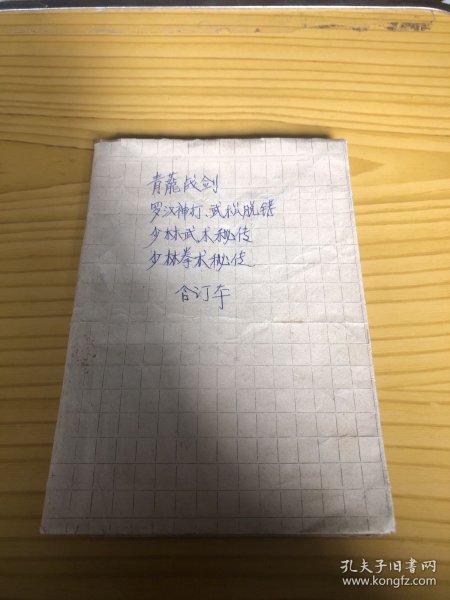 青龍战剑
罗汉神打、武松脱铐
少林武术秘传
少林拳术秘传
合订本
孔夫子旧书网
www.kongfz.com